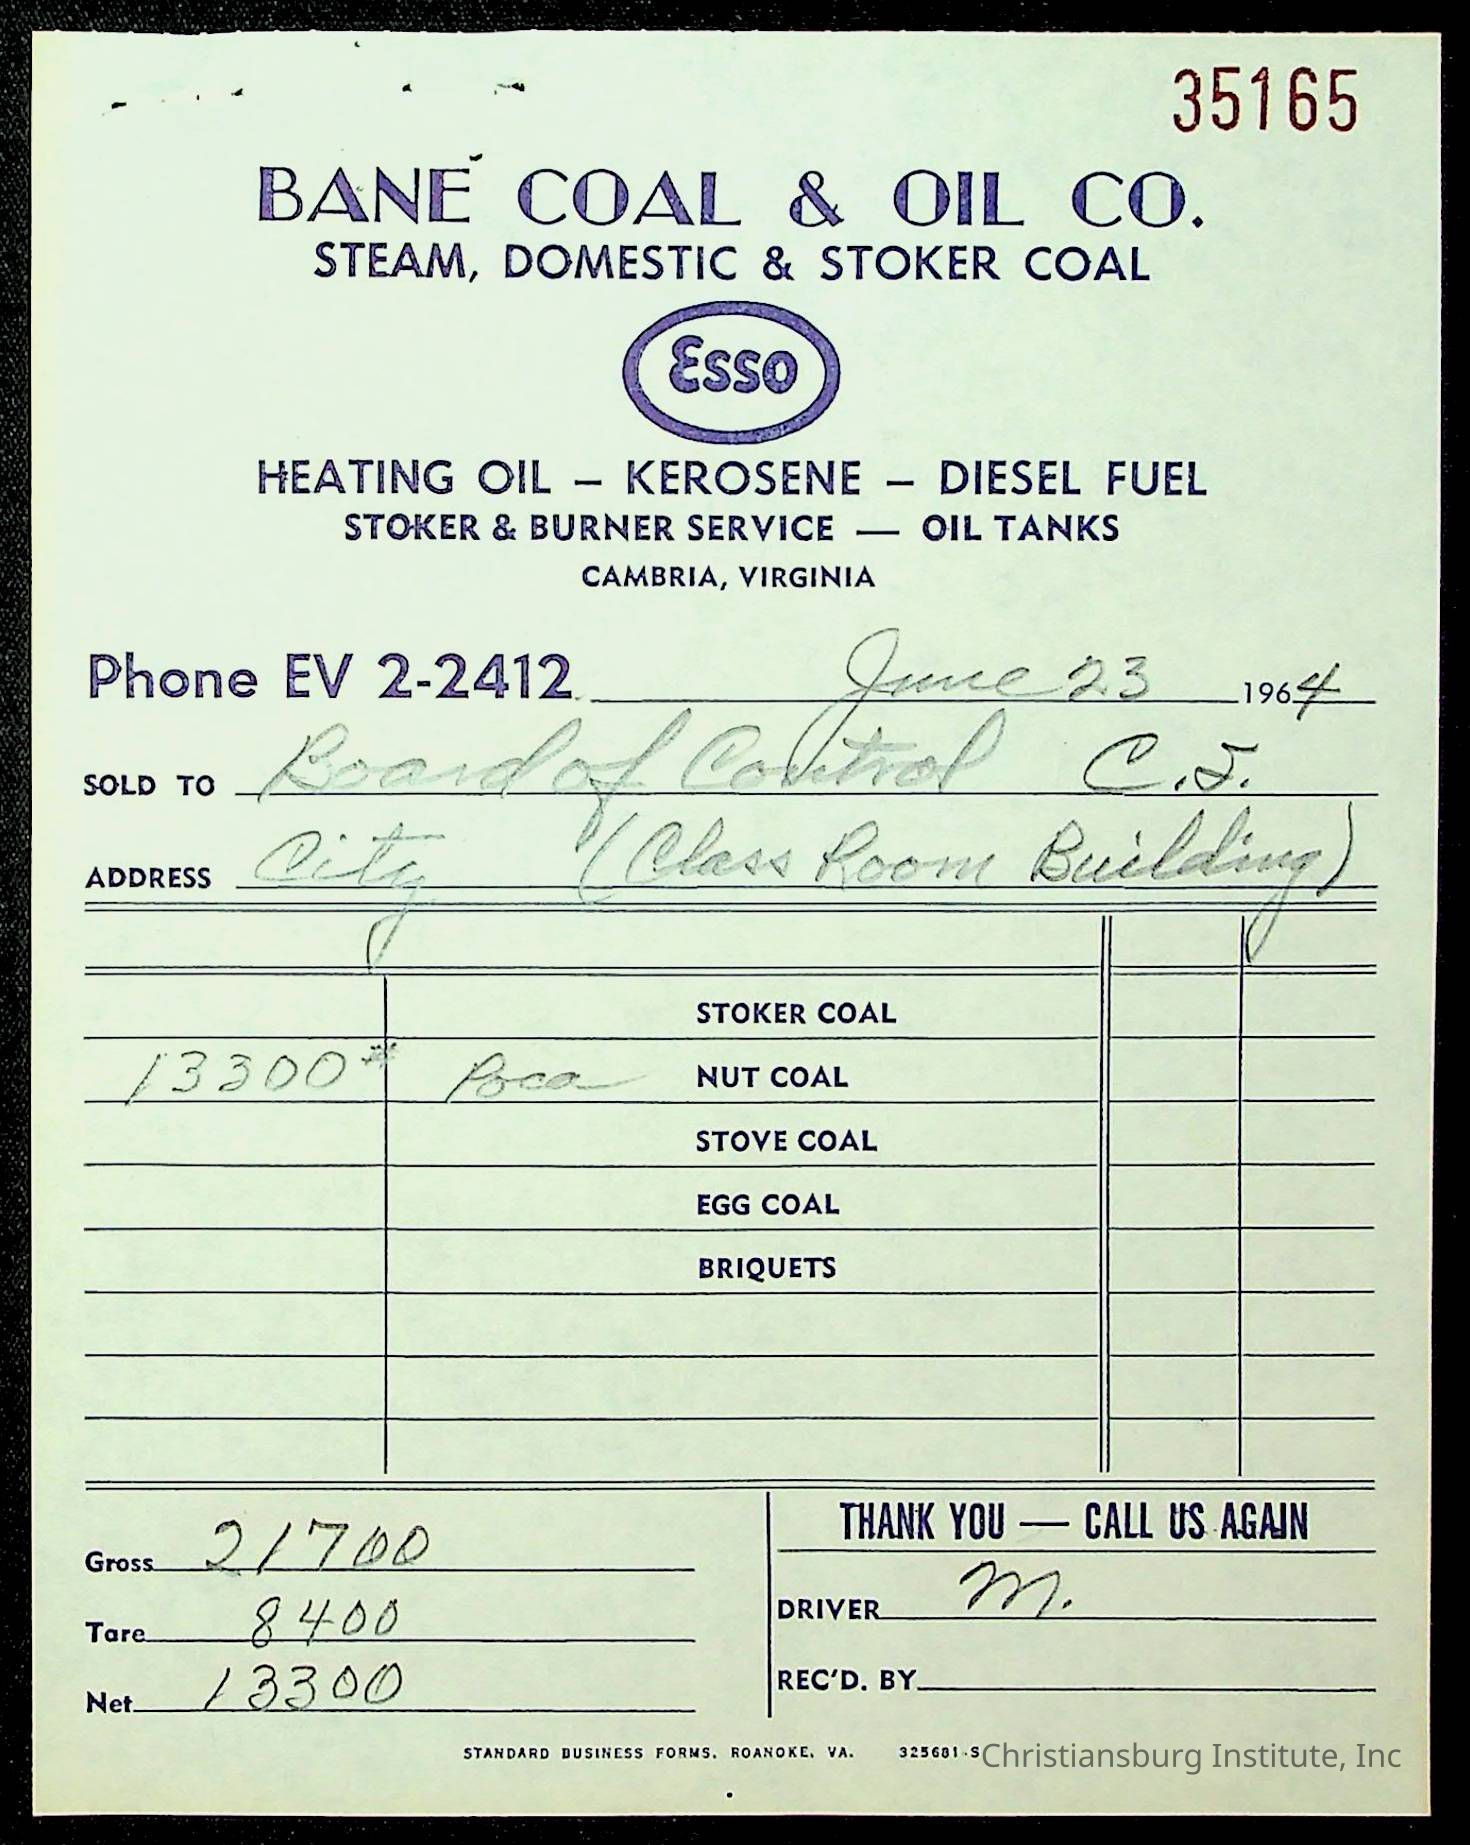 35165
BANE COAL & OIL CO.
STEAM, DOMESTIC & STOKER COAL
Esso
HEATING OIL – KEROSENE – DIESEL FUEL
STOKER & BURNER SERVICE — OIL TANKS
CAMBRIA, VIRGINIA
Phone EV 2-2412 June 23 1964
SOLD TO Board of Control C.I.
ADDRESS City (Class Room Building)
STOKER COAL
13300# Poca NUT COAL
STOVE COAL
EGG COAL
BRIQUETS
THANK YOU — CALL US AGAIN
Gross 21700
Tare 8400
Net 13300
DRIVER M.
REC'D. BY
STANDARD BUSINESS FORMS, ROANOKE, VA. 325681-S
Christiansburg Institute, Inc